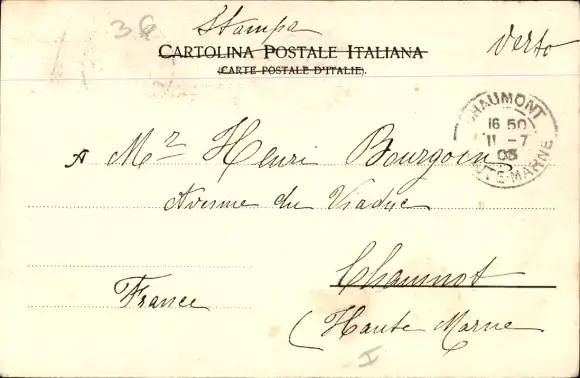 36
Stampa
Verto
CARTOLINA POSTALE ITALIANA
(CARTE POSTALE D'ITALIE).
CHAUMONT
16 50
11 -7
03
HUTE-MARNE
A Mr Henri Bourgoin
Avenue du Viaduc
Chaumont
France
(Haute Marne
I